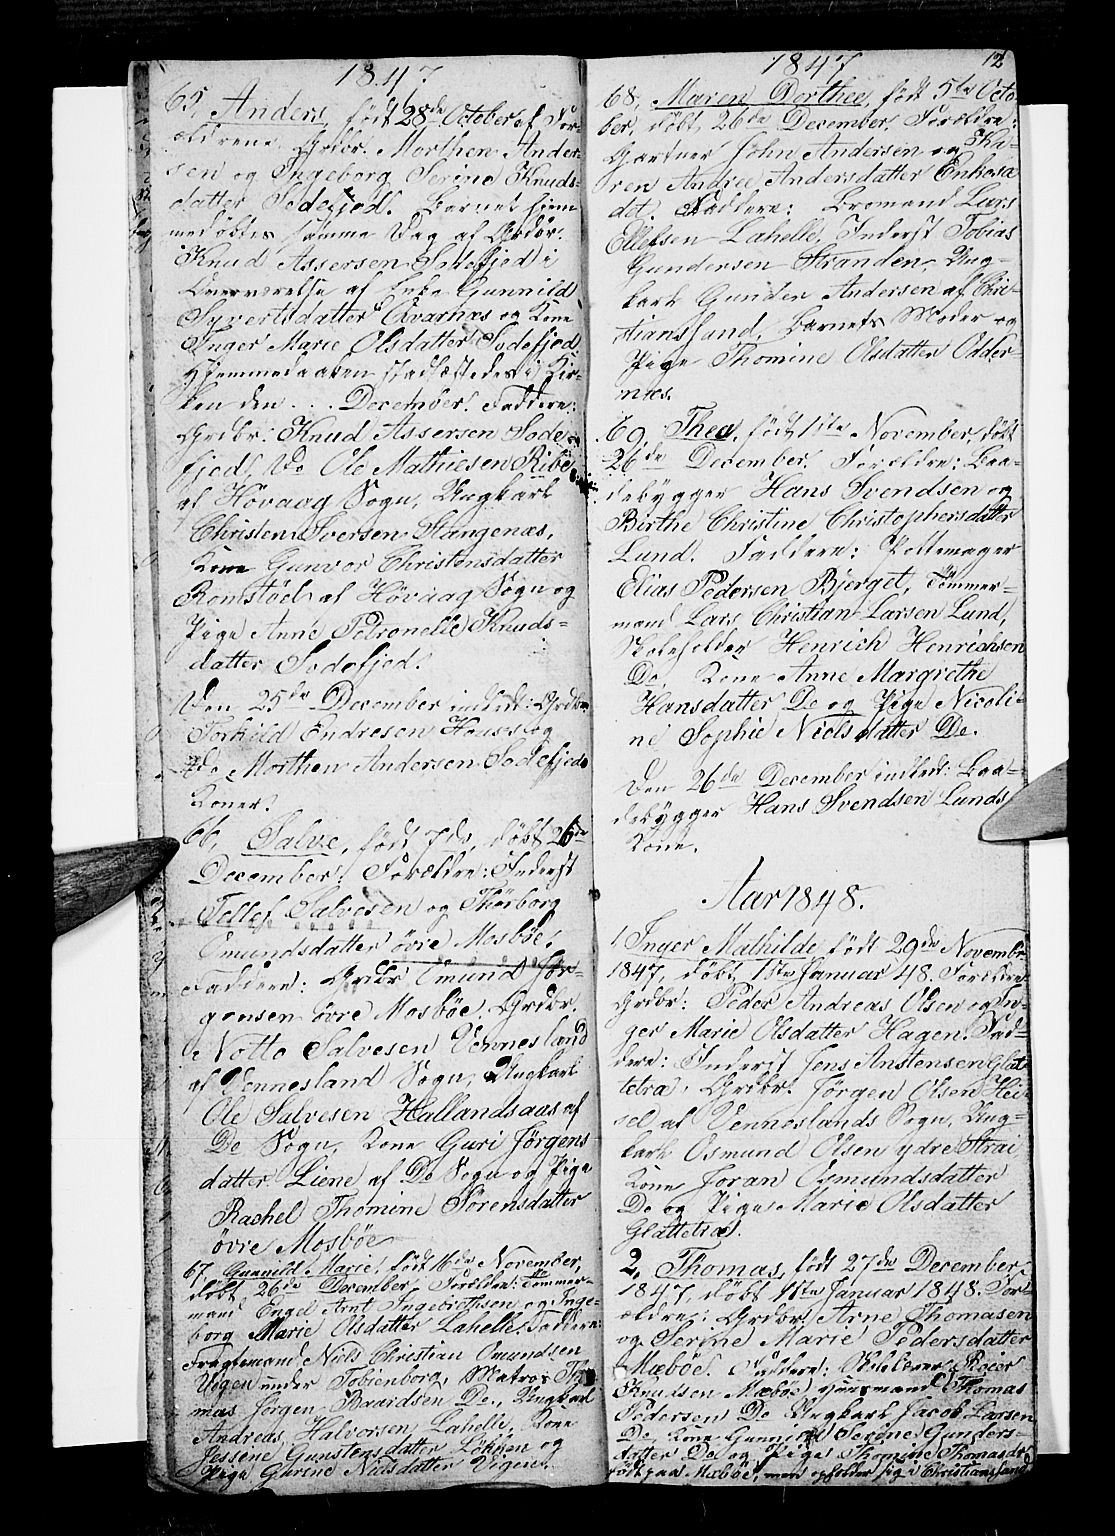 1847
65, Anders, född 28de October af For-
ældrene Grdbr. Morthen Ander-
sen og Ingeborg Serine Knuds-
datter Sodefjed. Barnet hjem-
medöbtes samme Dag af Grdbr.
Knud Assersen Sodefjed i
Overværelse af Enke Gunnild
Syvertsdatter Qvarnæs og Kone
Inger Marie Olsdatter Sodefjed
Hjemmedaaben stadfæstedes i Kir-
ken den . . . December. Faddere:
Grdbr. Knud Assersen Sode-
fjed, Do Ole Mathiesen Ribe
af Hövaag Sogn, Ungkarl
Christen Iversen Stangenæs,
Kone Gunvor Christensdatter
Romstöl af Hövaag Sogn og
Pige Anne Petronelle Knuds-
datter Sodefjed.
Den 25de December indledt: Grdbr.
Torkild Endresen Hauss og
Do Morthen Andersen Sodefjeds
Koner.
66, Salve, född 7de, döbt 26de
December. Forældre: Inderst
Tellef Salvesen og Thorborg
Omundsdatter övre Mosböe.
Faddere: Grdbr Omund Jör-
gensen övre Mosböe, Grdbr.
Notto Salvesen Vennesland
af Vennesland Sogn, Ungkarl
Ole Salvesen Hallandsaas af
Do Sogn, Kone Guri Jörgens
datter Liene af Do Sogn og Pige
Rachel Thomine Sörensdatter
övre Mosböe.
67, Gunnild Marie, född 16de November,
döbt 26de December. Forældre: Tömmer-
mand Engel Arnt Ingebrethsen og Inge-
borg Marie Olsdatter Lahelle. Faddere:
Fragtemand Niels Christian Omundsen
Vigen under Tobienborg, Matros Tho
mas Jörgen Baardsen Do, Ungkarl
Andreas Halvorsen Lahelle, Kone
Jessine Gunstensdatter Lökken og
Pige Gurine Nielsdatter Vigen.
1847 12
68, Maren Dorthee, född 5te Octo-
ber, döbt 26de December. Forældre:
Gartner John Andersen og Ka-
ren Andree Andersdatter Enkesæ
det. Faddere: Bromand Lars
Ellefsen Lahelle, Inderst Tobias
Gundersen Stranden, Ung-
karl Gunder Andersen af Chri-
stianssand, Barnets Moder og
Pige Thomine Olsdatter Odder-
næs.
69, Thea, född 1ste November, döbt
26de December. Forældre: Baa-
debygger Hans Svendsen og
Birthe Christine Christophersdatter
Lund. Faddere: Pottemager
Elias Pedersen Bjerget, Tömmer-
mand Lars Christian Larsen Lund,
Skoleholder Henrich Henrichsen
Do, Kone Anne Margrethe
Hansdatter Do og Pige Nicoli-
ne Sophie Nielsdatter Do.
Den 26de December indledt: Baa-
debygger Hans Svendsen Lunds
Kone.
Aar 1848.
1 Inger Mathilde, född 29de Novembr
1847, döbt 1ste Januar 48. Forældre:
Grdbr: Peder Andreas Olsen og In-
ger Marie Olsdatter Hagen. Fad-
dere: Inderst Jens Anstensen Glat
tetra, Grdbr. Jörgen Olsen Hei-
sel af Venneslands Sogn, Ung-
karl Osmund Olsen ydre Strai
Kone Joran Osmundsdatter
Do og Pige Marie Olsdatter
Glattetra.
2, Thomas, född 27de December
1847, döbt 1ste Januar 1848. For-
ældre: Grdbr. Arne Thomasen
og Serine Marie Pedersdatter
Mæböe. Faddere: Skibbererer Reier
Knudsen Mæböe, Huusmand Thomas
Pedersen Do Ungkarl Jacob Larsen
Do, Kone Gunnild Serine Gunders-
datter Do og Pige Thomine Thomasdr
född paa Mæböe, men opholder sig i Christianssand.